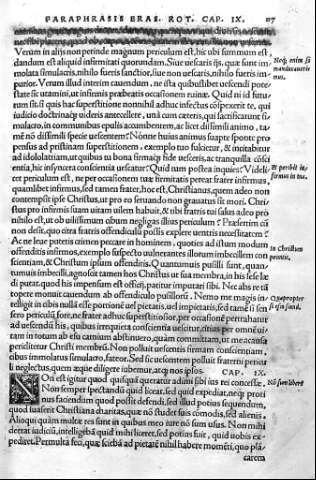 PARAPHRASIS ERAS. ROT. CAP. IX. 117
Verum in alijs non perinde magnum periculum est, hic ubi summum est,
dandum est aliquid infirmitati quorundam. Siue uescaris ijs, quæ sunt im
molata simulacris, nihilo fueris sanctior, siue non uescaris, nihilo fueris im-
purior. Verum illud interim cauendum, ne ista quibuslibet uescendi pote-
state sic utamini, ut infirmis præbeatis occasionem ruinæ. Quid ni id futu-
rum sit, si quis hac superstitione nonnihil adhuc infectus cōspexerit te, qui
iudicio doctrinaq́ uideris antecellere, unà cum cæteris, qui sacrificantur si-
mulacro, in communibus epulis accumbentem, ac licet dissimili animo, ta-
mē nō dissimili specie uescentem? Nonne huius animus suapte sponte pro
pensus ad pristinam superstitionem, exemplo tuo fulcietur, & incitabitur
ad idololatriam, ut quibus tu bona firmaq́ fide uesceris, ac tranquilla cōsci
entia, hic insyncera conscientia uescatur? Quid tum postea inquies? Videli-
cet periculum est, ne per occasionem tuæ firmitatis pereat frater infirmus,
quamlibet infirmus, sed tamen frater, hoc est, Christianus, quem adeo non
contempsit ipse Christus, ut pro eo seruando non grauatus sit mori. Chri-
stus pro infirmis suam uitam uilem habuit, & tibi fratris tui salus adeo pro
nihilo est, ut ob uilissimum cibum negligas illius periculum? Præsertim cū
non desit, quo citra fratris offendiculū possis explere uentris necessitatem?
Ac ne leue putetis crimen peccare in hominem, quoties ad istum modum
offenditis infirmos, exemplo suspecto uulnerantes illorum imbecillem con
scientiam, & Christum ipsum offenditis. Quantumuis pusilli sunt, quan-
tumuis imbecilli, agnoscit tamen hos Christus ut sua membra, in his læse læ
di putat, quod his impensum est officij, putat imputari sibi. Nec abs re tā
topere monui cauendum ab offendiculo pusillorū. Nemo me magis in-
telligit in cibis nulla esse portionē uel pietatis, uel impietatis, sed tamē si sen
sero periculū fore, ne frater adhuc superstitiosior, per occasionē pertrahatur
ad uescendū his, quibus irrequieta conscientia uescitur, citius per omnē ui-
tam in totum ab esu carnium abstinuero, quàm committam, ut mea causa
perielitetur Christi membrū. Non polluit uescentis firmam conscientiam,
cibus immolatus simulacro, fateor. Sed sic uescentem polluit fraterni pericu
li neglectus, quem æque diligere iubemur, atq́ nos ipsos. CAP. IX.
NOn est igitur quod quisquā queratur adimi sibi ius rei concessæ.
Non semper spectandū quid licet, sed quid expediat, neq́ proti
nus faciendum quod possit defendi, sed illud potius sequendum,
quod suaserit Christiana charitas, quæ nō studet suis cōmodis, sed alienis.
Alioqui quàm multæ res sunt in quibus meo iure nō sum usus. Non mihi
deerat iudiciū, intelligebā quid mihi liceret, sed potius fuit, quid uobis ex-
pediret. Permulta feci, quæ sciebā ad pietatē nihil habere momēti, quo pla-
carem
Neq́ enim si
manducauerimus
Et peribit in-
firmus in tua
In Christum
peccatis.
Quapropter
si esca scand.
Nō sum liber?